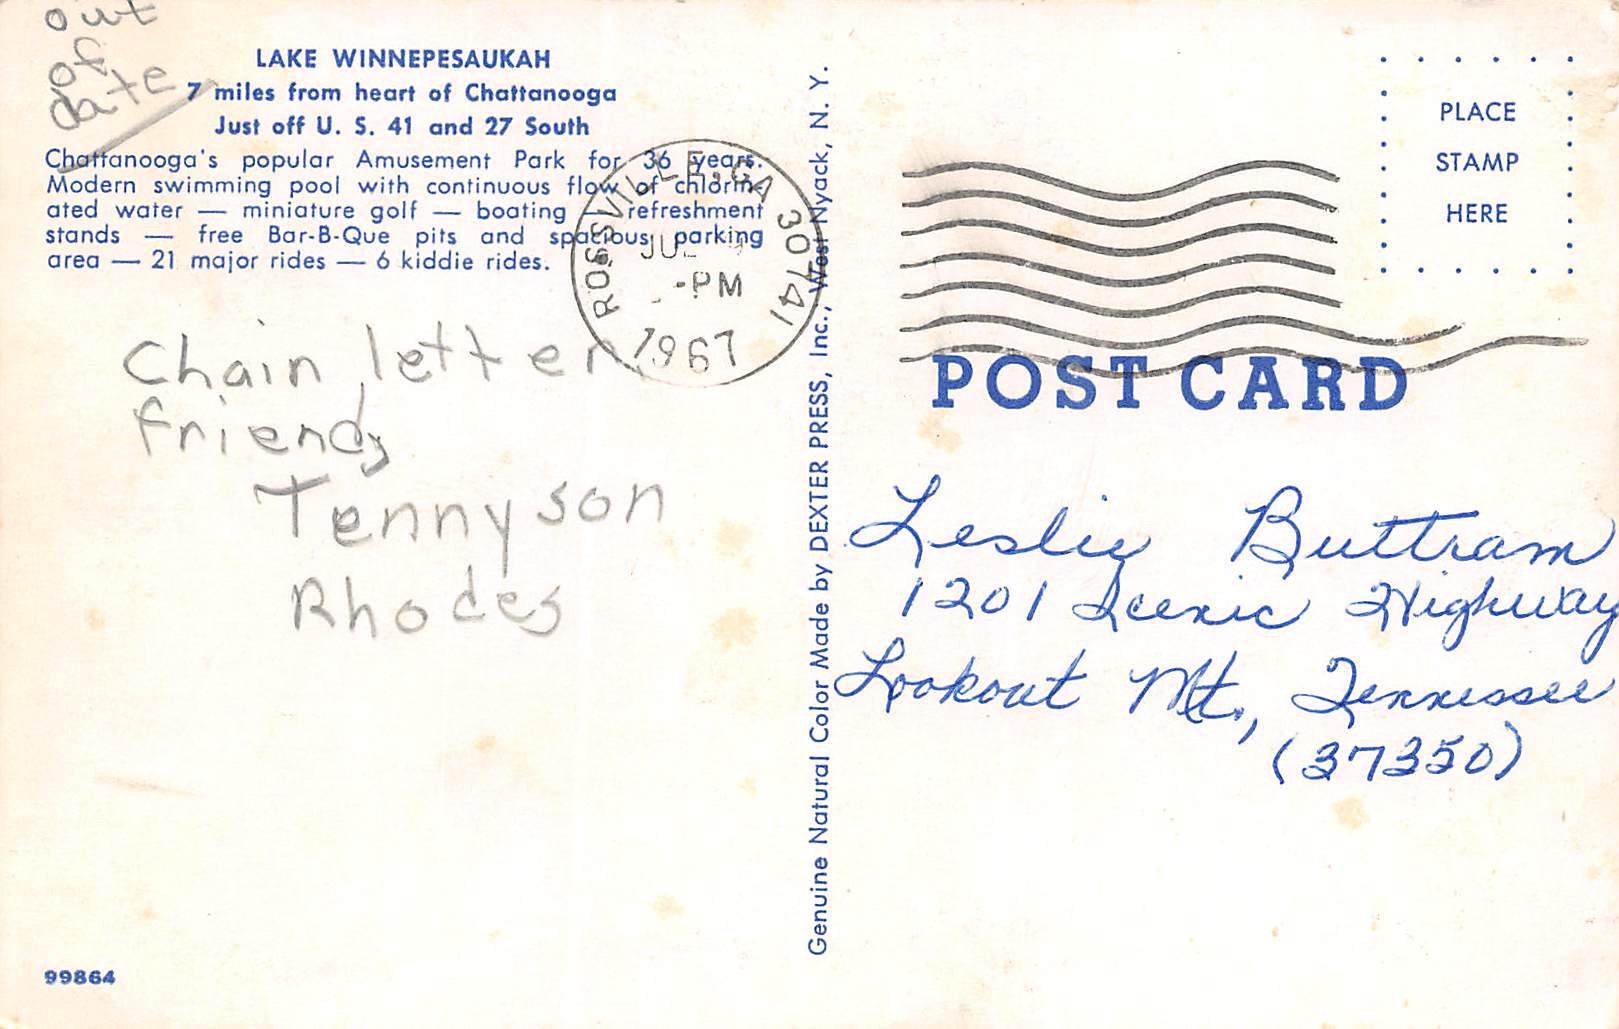 out
of
date
LAKE WINNEPESAUKAH
7 miles from heart of Chattanooga
Just off U. S. 41 and 27 South
Chattanooga's popular Amusement Park for 36 years.
Modern swimming pool with continuous flow of chlorin-
ated water — miniature golf — boating — refreshment
stands — free Bar-B-Que pits and spacious parking
area — 21 major rides — 6 kiddie rides.
ROSSVILLE, GA 30741
JUL
-PM
1967
Chain letter
friend,
Tennyson
Rhodes
99864
Genuine Natural Color Made by DEXTER PRESS, Inc., West Nyack, N. Y.
PLACE
STAMP
HERE
POST CARD
Leslie Buttram
1201 Scenic Highway
Lookout Mt., Tennessee
(37350)